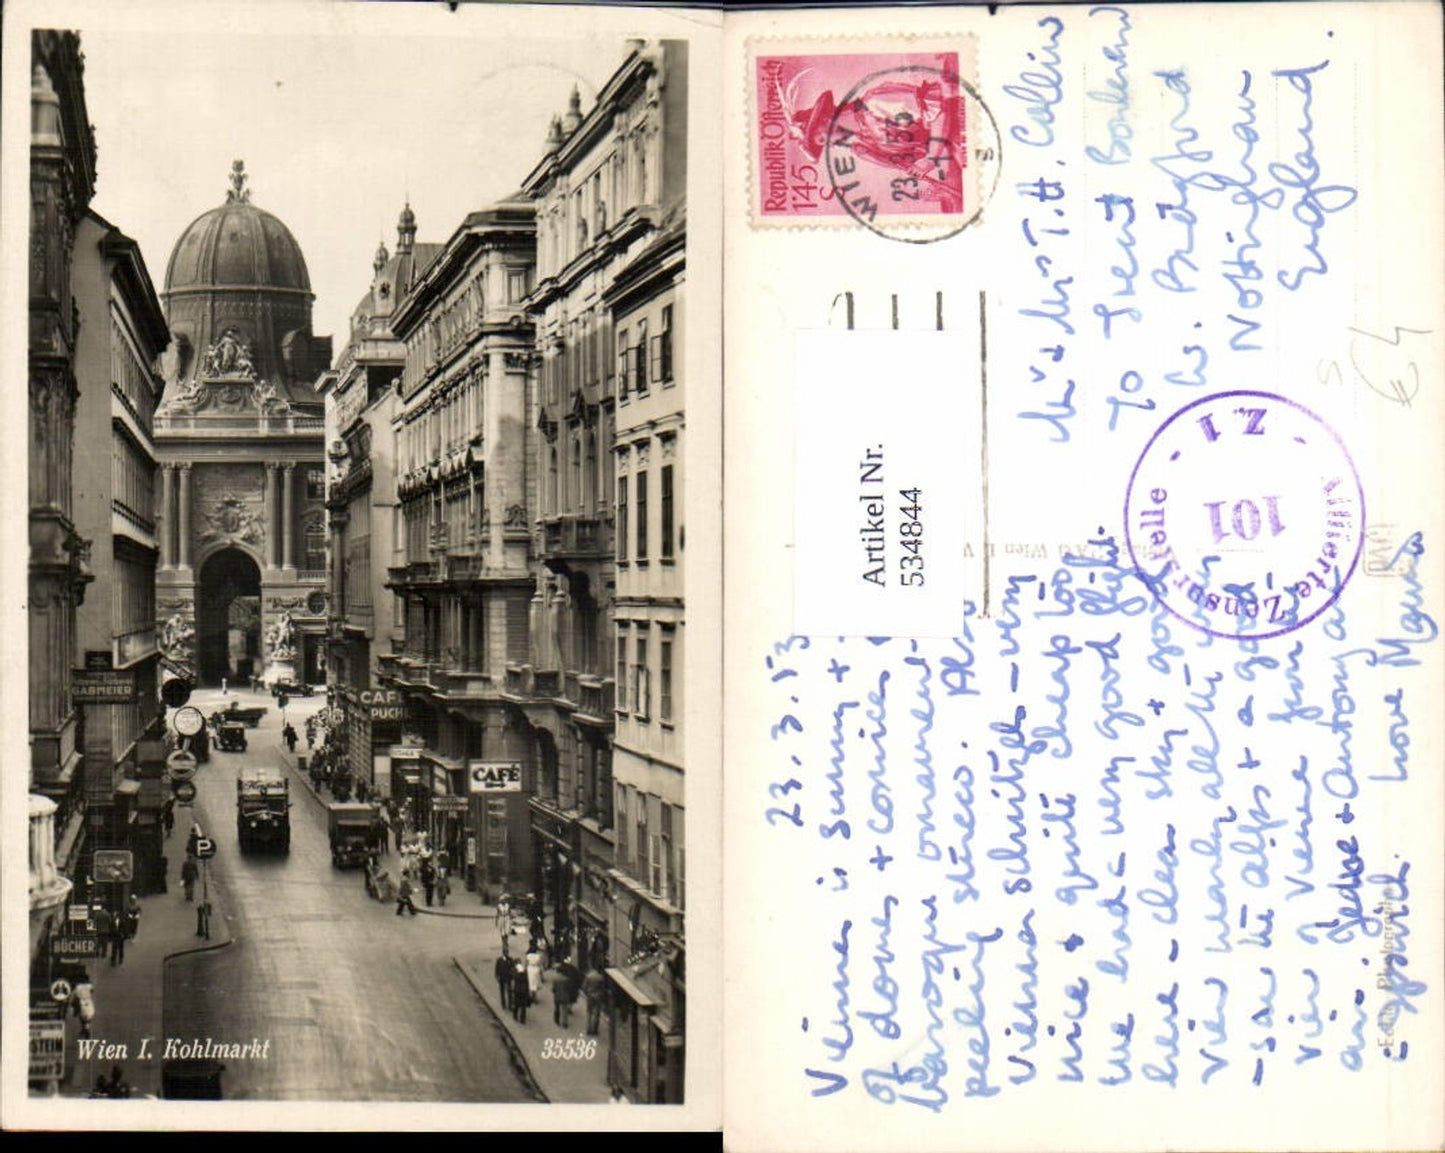 GABMEIER
CAFÉ
CAFÉ
P
BÜCHER
STEIN
Wien I. Kohlmarkt
35536
Republik Österreich
1'45
S
WIEN
23.3.53 -17
Artikel Nr.
534844
Alliierte Zensurstelle
101
101
Z.1
€4
Mr & Mrs T.H. Collin
70 Trent Boulevard
W. Bridgford
Nottingham
England.
23.3.53
Vienna is sunny +
of domes + cornices
baroque ornament
peeling stucco. Also
Viennese schnitzel - very
nice & quite cheap too
We had a very good flight.
here - clear sky & good
view nearly all the way
- saw the alps + a good
view of Vienna from the
air. Jesse & Antony are
in Ipswich. Love Magnus